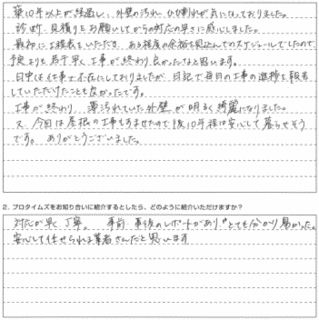 築10年以上が経過し、外壁の汚れ、ひび割れが気になっておりました。
診断、見積りをお願いしてからの対応の早さに感心しました。
最初に工程表をいただき、ある程度の余裕を見込んでのスケジュールでしたので、
予定よりも若干早く工事が終わり、良かったなと思います。
日中は仕事で不在にしておりましたが、日記で毎日の工事の進捗を報告
していただけたことも良かったです。
工事が終わり、薄汚れていた外壁が明るく綺麗になりました。
又、今回は屋根の工事もすませたので後10年程は安心して暮らせそう
です。ありがとうございました。
2. プロタイムズをお知り合いに紹介するとしたら、どのように紹介いただけますか?
対応が早く丁寧。事前、事後のレポートがあり、とても分かり易かった。
安心して任せられる業者さんだと思います